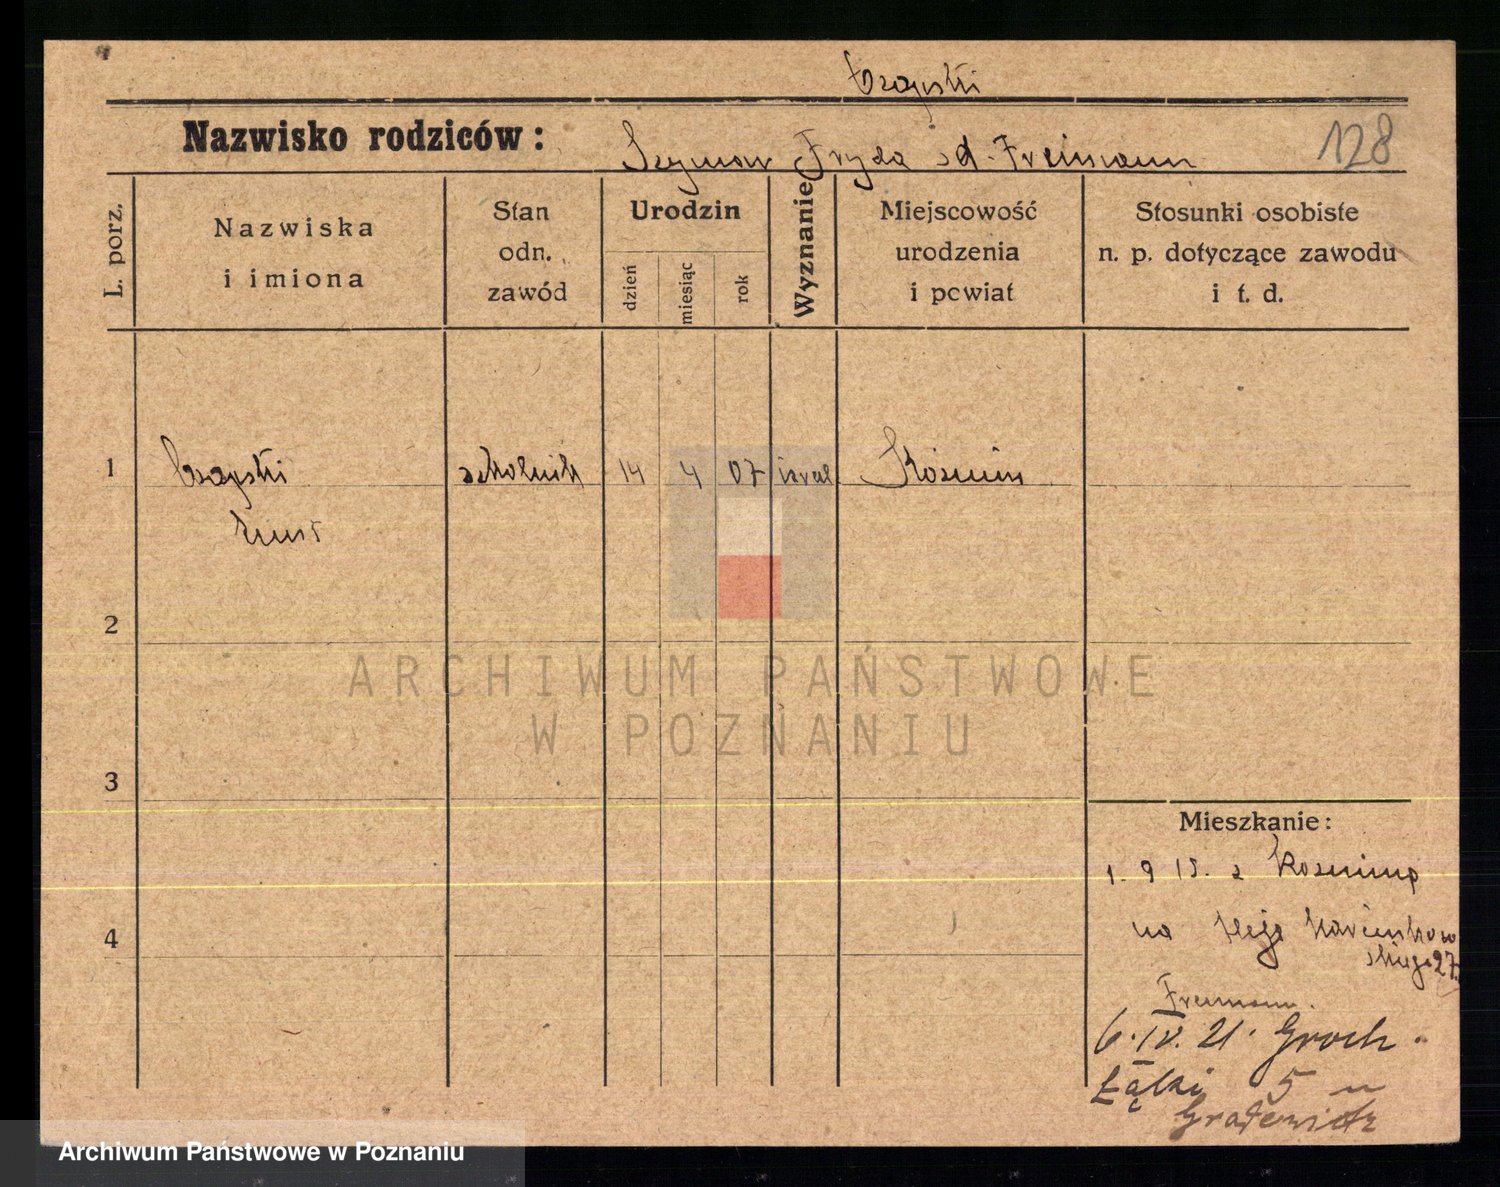 Czapski
Nazwisko rodziców: Szymon Fryda zd. Freimann 128
L. porz.
Nazwiska
i imiona
Stan
odn.
zawód
Urodzin
dzień
miesiąc
rok
Wyznanie
Miejscowość
urodzenia
i powiat
Stosunki osobiste
n. p. dotyczące zawodu
i t. d.
1 Czapski szkolnik 14 4 07 izrael. Koźmin
2
3
4
Mieszkanie:
1. 9 18. z Koźmina
na Aleje Marcinkow
27.
Freimann.
6. IV. 21. Groch.
Łąki 5 u
ARCHIWUM PAŃSTWOWE
W POZNANIU
Archiwum Państwowe w Poznaniu